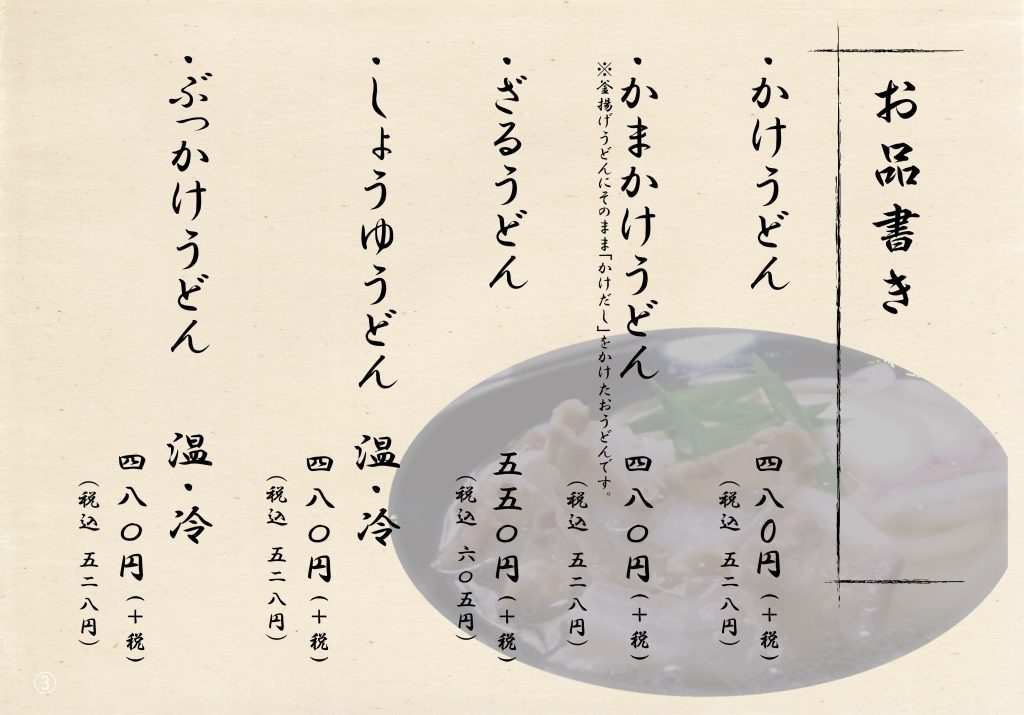 お品書き
・かけうどん
四八０円（＋税）
（税込 五二八円）
・かまかけうどん
四八〇円（＋税）
※釜揚げうどんにそのまま「かけだし」をかけたおうどんです。
（税込 五二八円）
・ざるうどん
五五〇円（＋税）
（税込 六〇五円）
・しょうゆうどん 温・冷
四八〇円（＋税）
（税込 五二八円）
・ぶっかけうどん 温・冷
四八〇円（＋税）
（税込 五二八円）
③